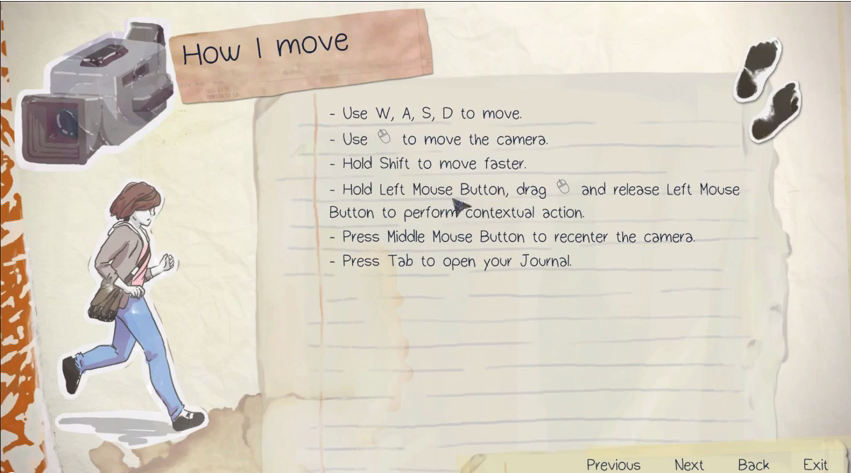 How I move
- Use W, A, S, D to move.
- Use to move the camera.
- Hold Shift to move faster.
- Hold Left Mouse Button, drag and release Left Mouse
Button to perform contextual action.
- Press Middle Mouse Button to recenter the camera.
- Press Tab to open your Journal.
Previous Next Back Exit